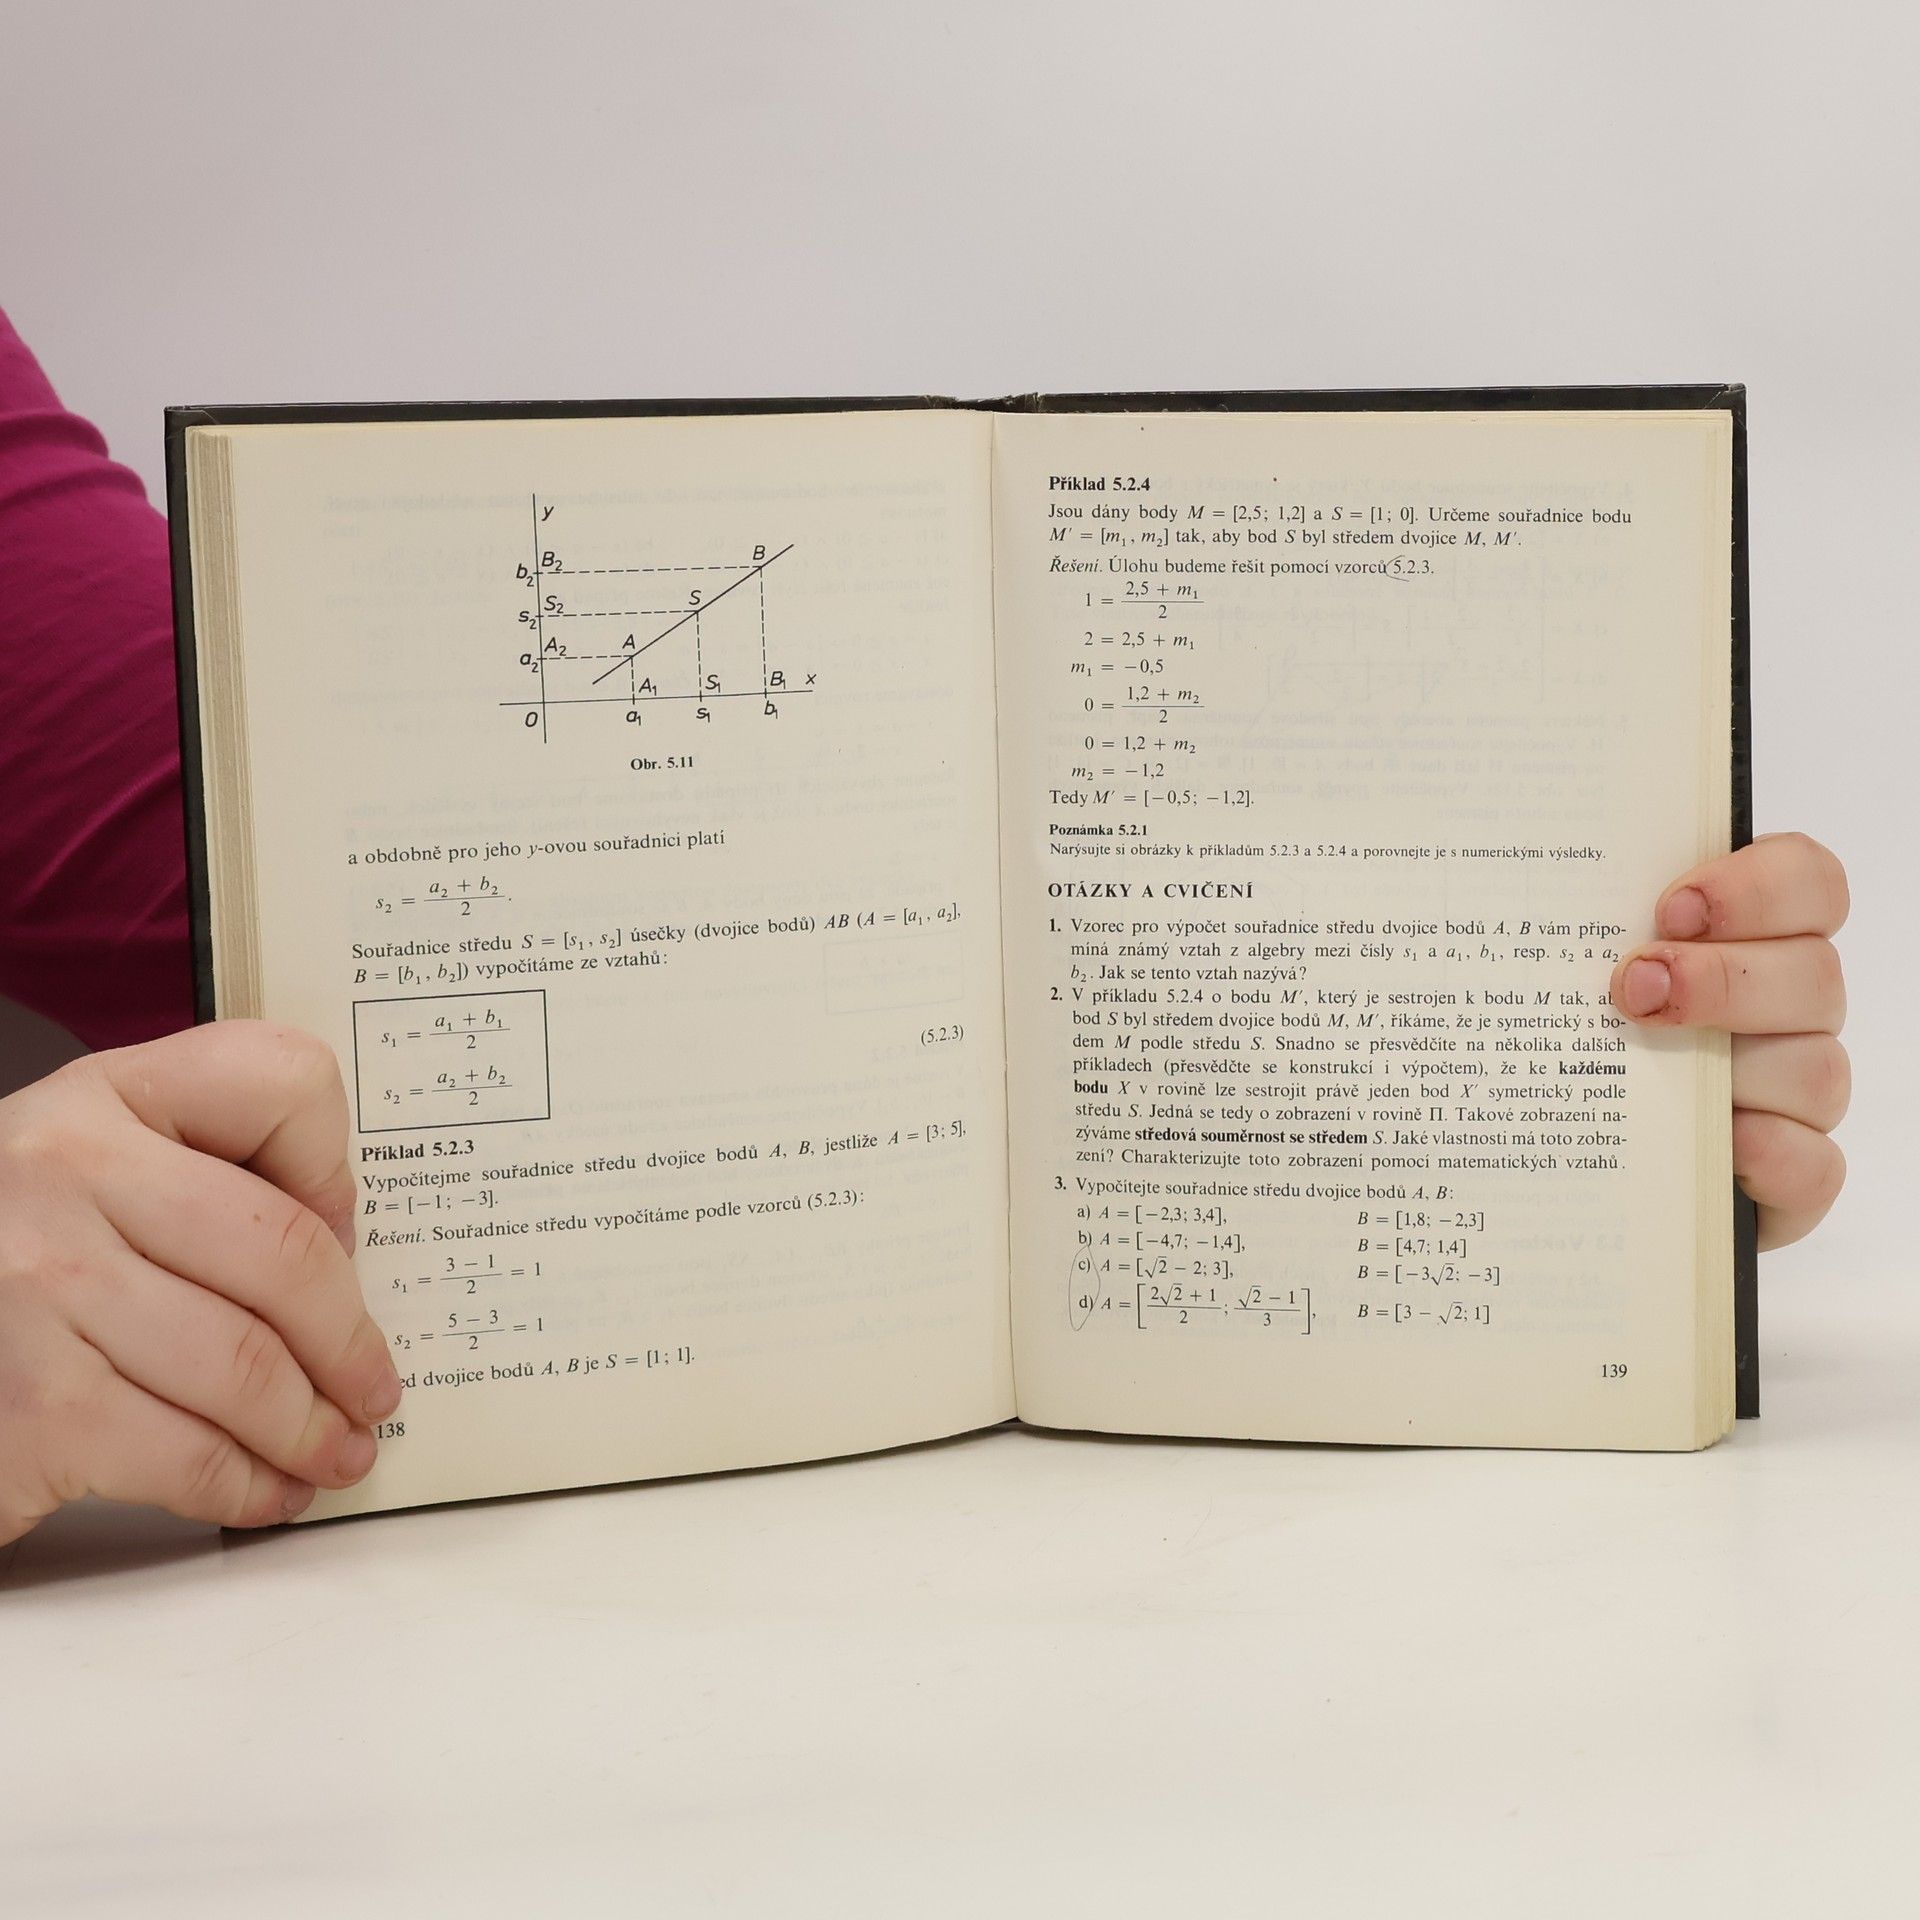 y
b₂ B₂ B
s₂ S₂ S
a₂ A₂ A
A₁ S₁ B₁ x
0 a₁ s₁ b₁
Obr. 5.11
a obdobně pro jeho y-ovou souřadnici platí
s₂ = (a₂ + b₂)/2.
Souřadnice středu S = [s₁, s₂] úsečky (dvojice bodů) AB (A = [a₁, a₂],
B = [b₁, b₂]) vypočítáme ze vztahů:
s₁ = (a₁ + b₁)/2
(5.2.3)
s₂ = (a₂ + b₂)/2
Příklad 5.2.3
Vypočítejme souřadnice středu dvojice bodů A, B, jestliže A = [3; 5],
B = [−1; −3].
Řešení. Souřadnice středu vypočítáme podle vzorců (5.2.3):
s₁ = (3 − 1)/2 = 1
s₂ = (5 − 3)/2 = 1
ed dvojice bodů A, B je S = [1; 1].
138
Příklad 5.2.4
Jsou dány body M = [2,5; 1,2] a S = [1; 0]. Určeme souřadnice bodu
M′ = [m₁, m₂] tak, aby bod S byl středem dvojice M, M′.
Řešení. Úlohu budeme řešit pomocí vzorců 5.2.3.
1 = (2,5 + m₁)/2
2 = 2,5 + m₁
m₁ = −0,5
0 = (1,2 + m₂)/2
0 = 1,2 + m₂
m₂ = −1,2
Tedy M′ = [−0,5; −1,2].
Poznámka 5.2.1
Narýsujte si obrázky k příkladům 5.2.3 a 5.2.4 a porovnejte je s numerickými výsledky.
OTÁZKY A CVIČENÍ
1. Vzorec pro výpočet souřadnice středu dvojice bodů A, B vám připo-
míná známý vztah z algebry mezi čísly s₁ a a₁, b₁, resp. s₂ a a₂,
b₂. Jak se tento vztah nazývá?
2. V příkladu 5.2.4 o bodu M′, který je sestrojen k bodu M tak, a
bod S byl středem dvojice bodů M, M′, říkáme, že je symetrický s bo-
dem M podle středu S. Snadno se přesvědčíte na několika dalších
příkladech (přesvědčte se konstrukcí i výpočtem), že ke každému
bodu X v rovině lze sestrojit právě jeden bod X′ symetrický podle
středu S. Jedná se tedy o zobrazení v rovině Π. Takové zobrazení na-
zýváme středová souměrnost se středem S. Jaké vlastnosti má toto zobra-
zení? Charakterizujte toto zobrazení pomocí matematických vztahů.
3. Vypočítejte souřadnice středu dvojice bodů A, B:
a) A = [−2,3; 3,4], B = [1,8; −2,3]
b) A = [−4,7; −1,4], B = [4,7; 1,4]
c) A = [√2 − 2; 3], B = [−3√2; −3]
d) A = [(2√2 + 1)/2; (√2 − 1)/3], B = [3 − √2; 1]
139